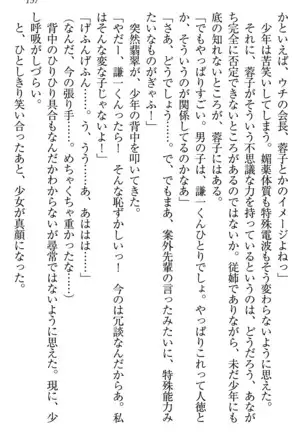 かといえば、ウチの会長、蓉子とかのイメージよねっ」
少年は苦笑いしてしまう。媚薬体質も特殊電波もそう変わらないように思えた。
それに、蓉子がそういう不思議な力を持っているというのは、どうだろう、あなが
ち完全に否定できないところがあるのではないか。従姉でありながら、未だ少年にも
底の知れないところが、蓉子にはある。
「でも、やっぱりそうでしょう。男の子は、謙一くんひとりでしょ。やっぱりこれって人徳と
か、そういうのが関係してるのかなぁ」
「さあ、どうでしょう……。で、でもまあ、案外先輩の言ったみたいに、特殊能力み
たいなものがぎゃふ！」
突然翡翠が、少年の背中を叩いてきた。
「やだー！　謙一くんったら！　そんな恥ずかしいっ！　今のは冗談なんだからぁ。私
はそんな変な子じゃないよ！」
「げふんげふん……。う、うう……あ、あははは……」
（な、なんだ、今の張り手……。めちゃくちゃ重かったな……）
背中のひりひり具合もなんだかわからないが尋常ではないように思えた。現に、少
し呼吸がしづらい。
と、ひとしきり笑い合ったあと、少女が真顔になった。